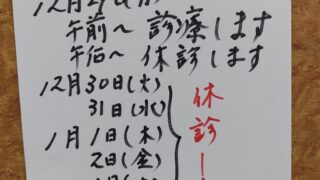 午前～診療します
午后～休診します
12月30日(火)
31日(水)
1月1日(木)
2日(金)
休診